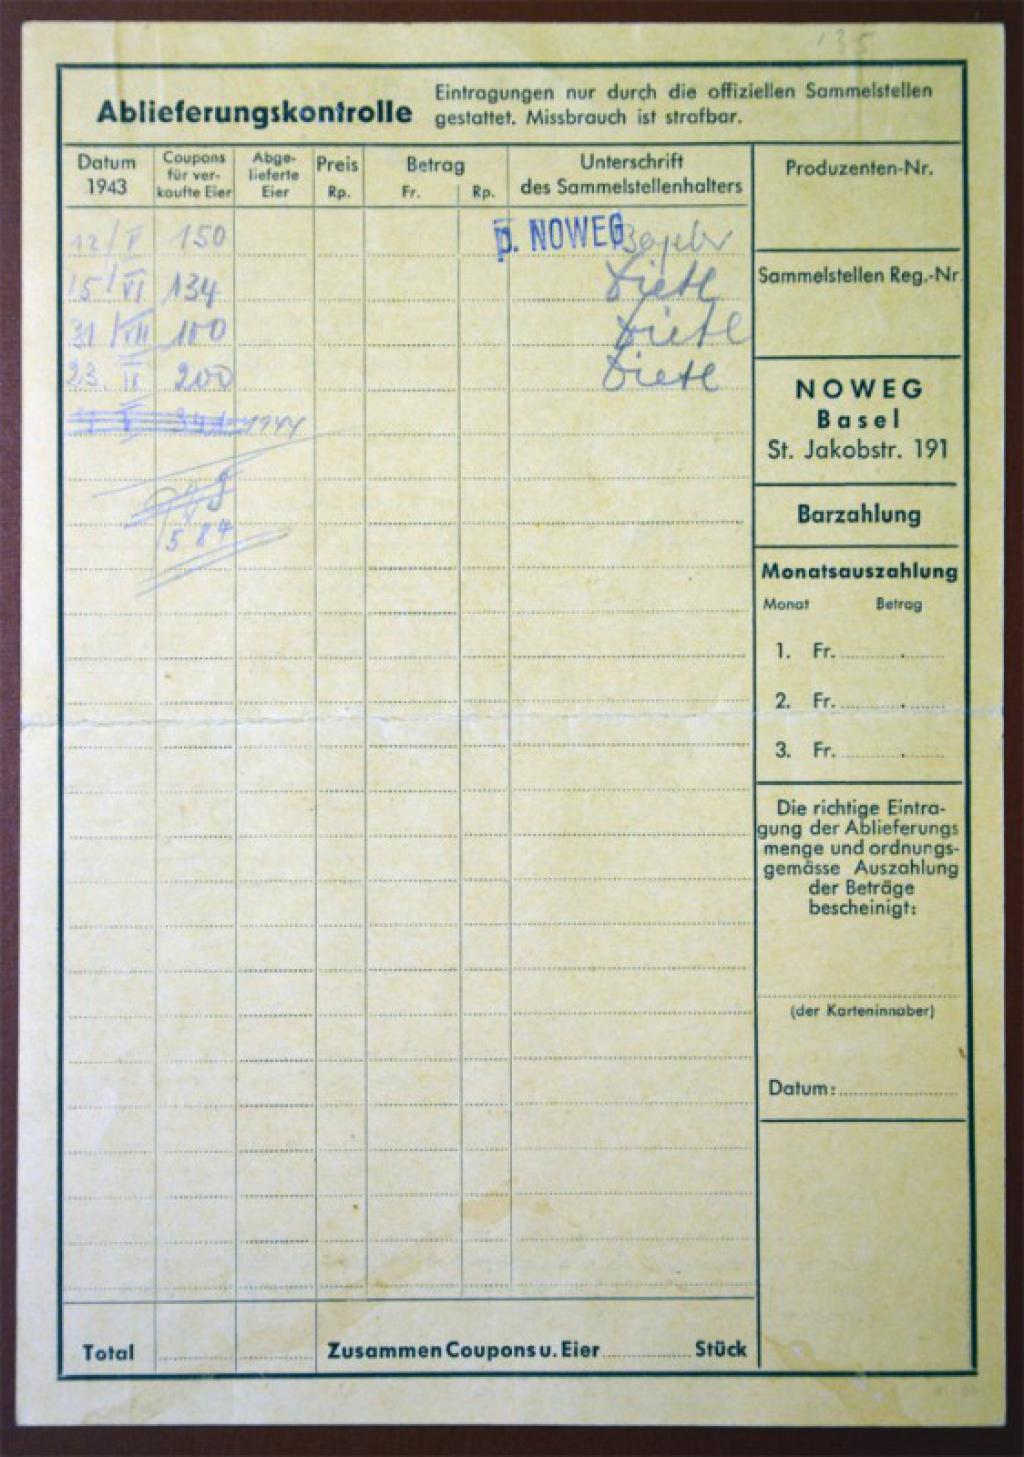 135
Ablieferungskontrolle
Eintragungen nur durch die offiziellen Sammelstellen
gestattet. Missbrauch ist strafbar.
Datum
1943
Coupons
für ver-
kaufte Eier
Abge-
lieferte
Eier
Preis
Rp.
Betrag
Fr. Rp.
Unterschrift
des Sammelstellenhalters
12/V 150 p. NOWEG
15/VI 134 Dietl
31/VII 100 Dietl
23. IX 200 Dietl
1944
584
Total
Zusammen Coupons u. Eier Stück
Produzenten-Nr.
Sammelstellen Reg.-Nr.
NOWEG
Basel
St. Jakobstr. 191
Barzahlung
Monatsauszahlung
Monat Betrag
1. Fr.
2. Fr.
3. Fr.
Die richtige Eintra-
gung der Ablieferungs
menge und ordnungs-
gemässe Auszahlung
der Beträge
bescheinigt:
(der Karteninhaber)
Datum: